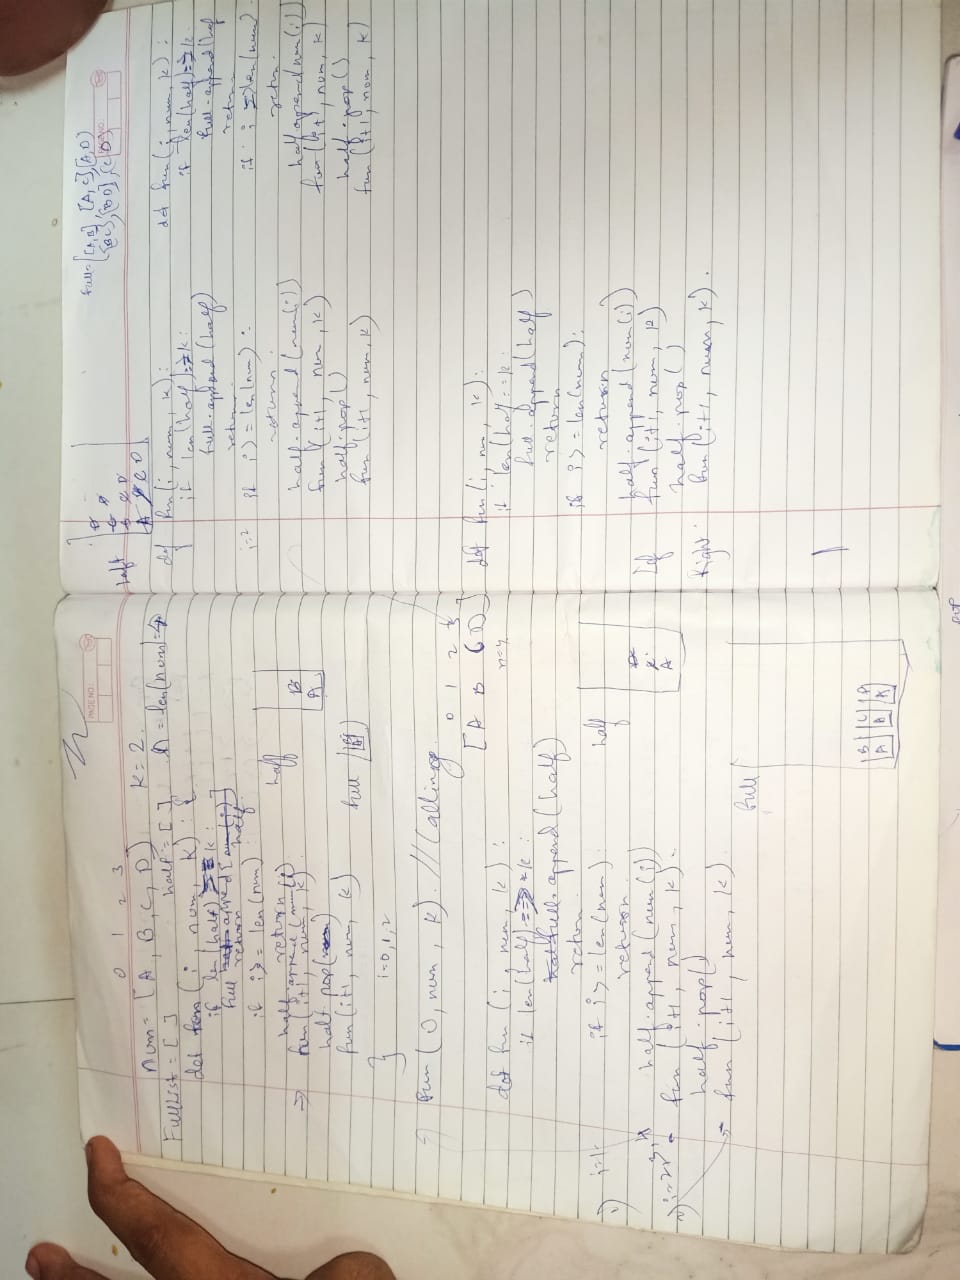 PAGE NO:
0 1 2 3
num = [A, B, C, D] k = 2
FullList = [ ] half = [ ] n = len(num) = 4
def fun(i, num, k) : {
if len(half) == k :
full append [half]
return
if i >= len(num) :
return
half.append(num(i))
fun(i+1, num, k)
half.pop()
fun(i+1, num, k)
}
i = 0, 1, 2
half
B
A
full
fun(0, num, k). // Calling
0 1 2 3
[A B C D]
n=4
def fun(i, num, k) :
if len(half) == k :
full.append(half)
return
if i >= len(num) :
return
half.append(num(i))
fun(i+1, num, k).
half.pop()
fun(i+1, num, k)
half
A
full
PAGE NO:
full = [A,B] [A,C] [A,D]
[BC], [BD], [C D]
def fun(i, num, k) :
if len(half) == k :
full.append(half)
return
i=2 if i >= len(num) :
return
half.append(num(i))
fun(i+1, num, k)
half.pop()
fun(i+1, num, k)
def fun(i, num, k) :
if len(half) == k :
full.append(half
return
if i >= len(num)
return
half append num(i)
fun(i+1, num, k)
half.pop()
fun(i+1, num, k)
def fun(i, num, k) :
if len(half == k :
full.append(half)
return
if i >= len(num) :
return
half.append(num(i))
fun(i+1, num, k)
half.pop()
Right. fun(i+1, num, k).